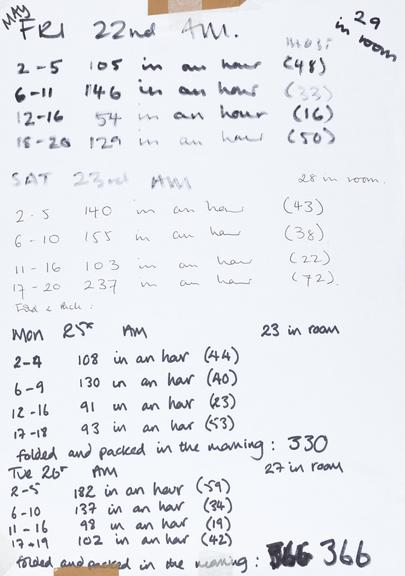 MAY
FRI 22nd AM.
29 in room
most
2-5 105 in an hour (48)
6-11 146 in an hour (33)
12-16 54 in an hour (16)
18-20 129 in an hour (50)
SAT 23rd AM
28 in room.
2-5 140 in an hour (43)
6-10 155 in an hour (38)
11-16 103 in an hour (22)
17-20 237 in an hour (72).
Mon 25th AM 23 in room
2-4 108 in an hour (44)
6-9 130 in an hour (40)
12-16 91 in an hour (23)
17-18 93 in an hour (53)
folded and packed in the morning: 330
Tue 26th AM 27 in room
2-5 182 in an hour (59)
6-10 137 in an hour (34)
11-16 98 in an hour (19)
17-19 102 in an hour (42)
folded and packed in the morning: 366